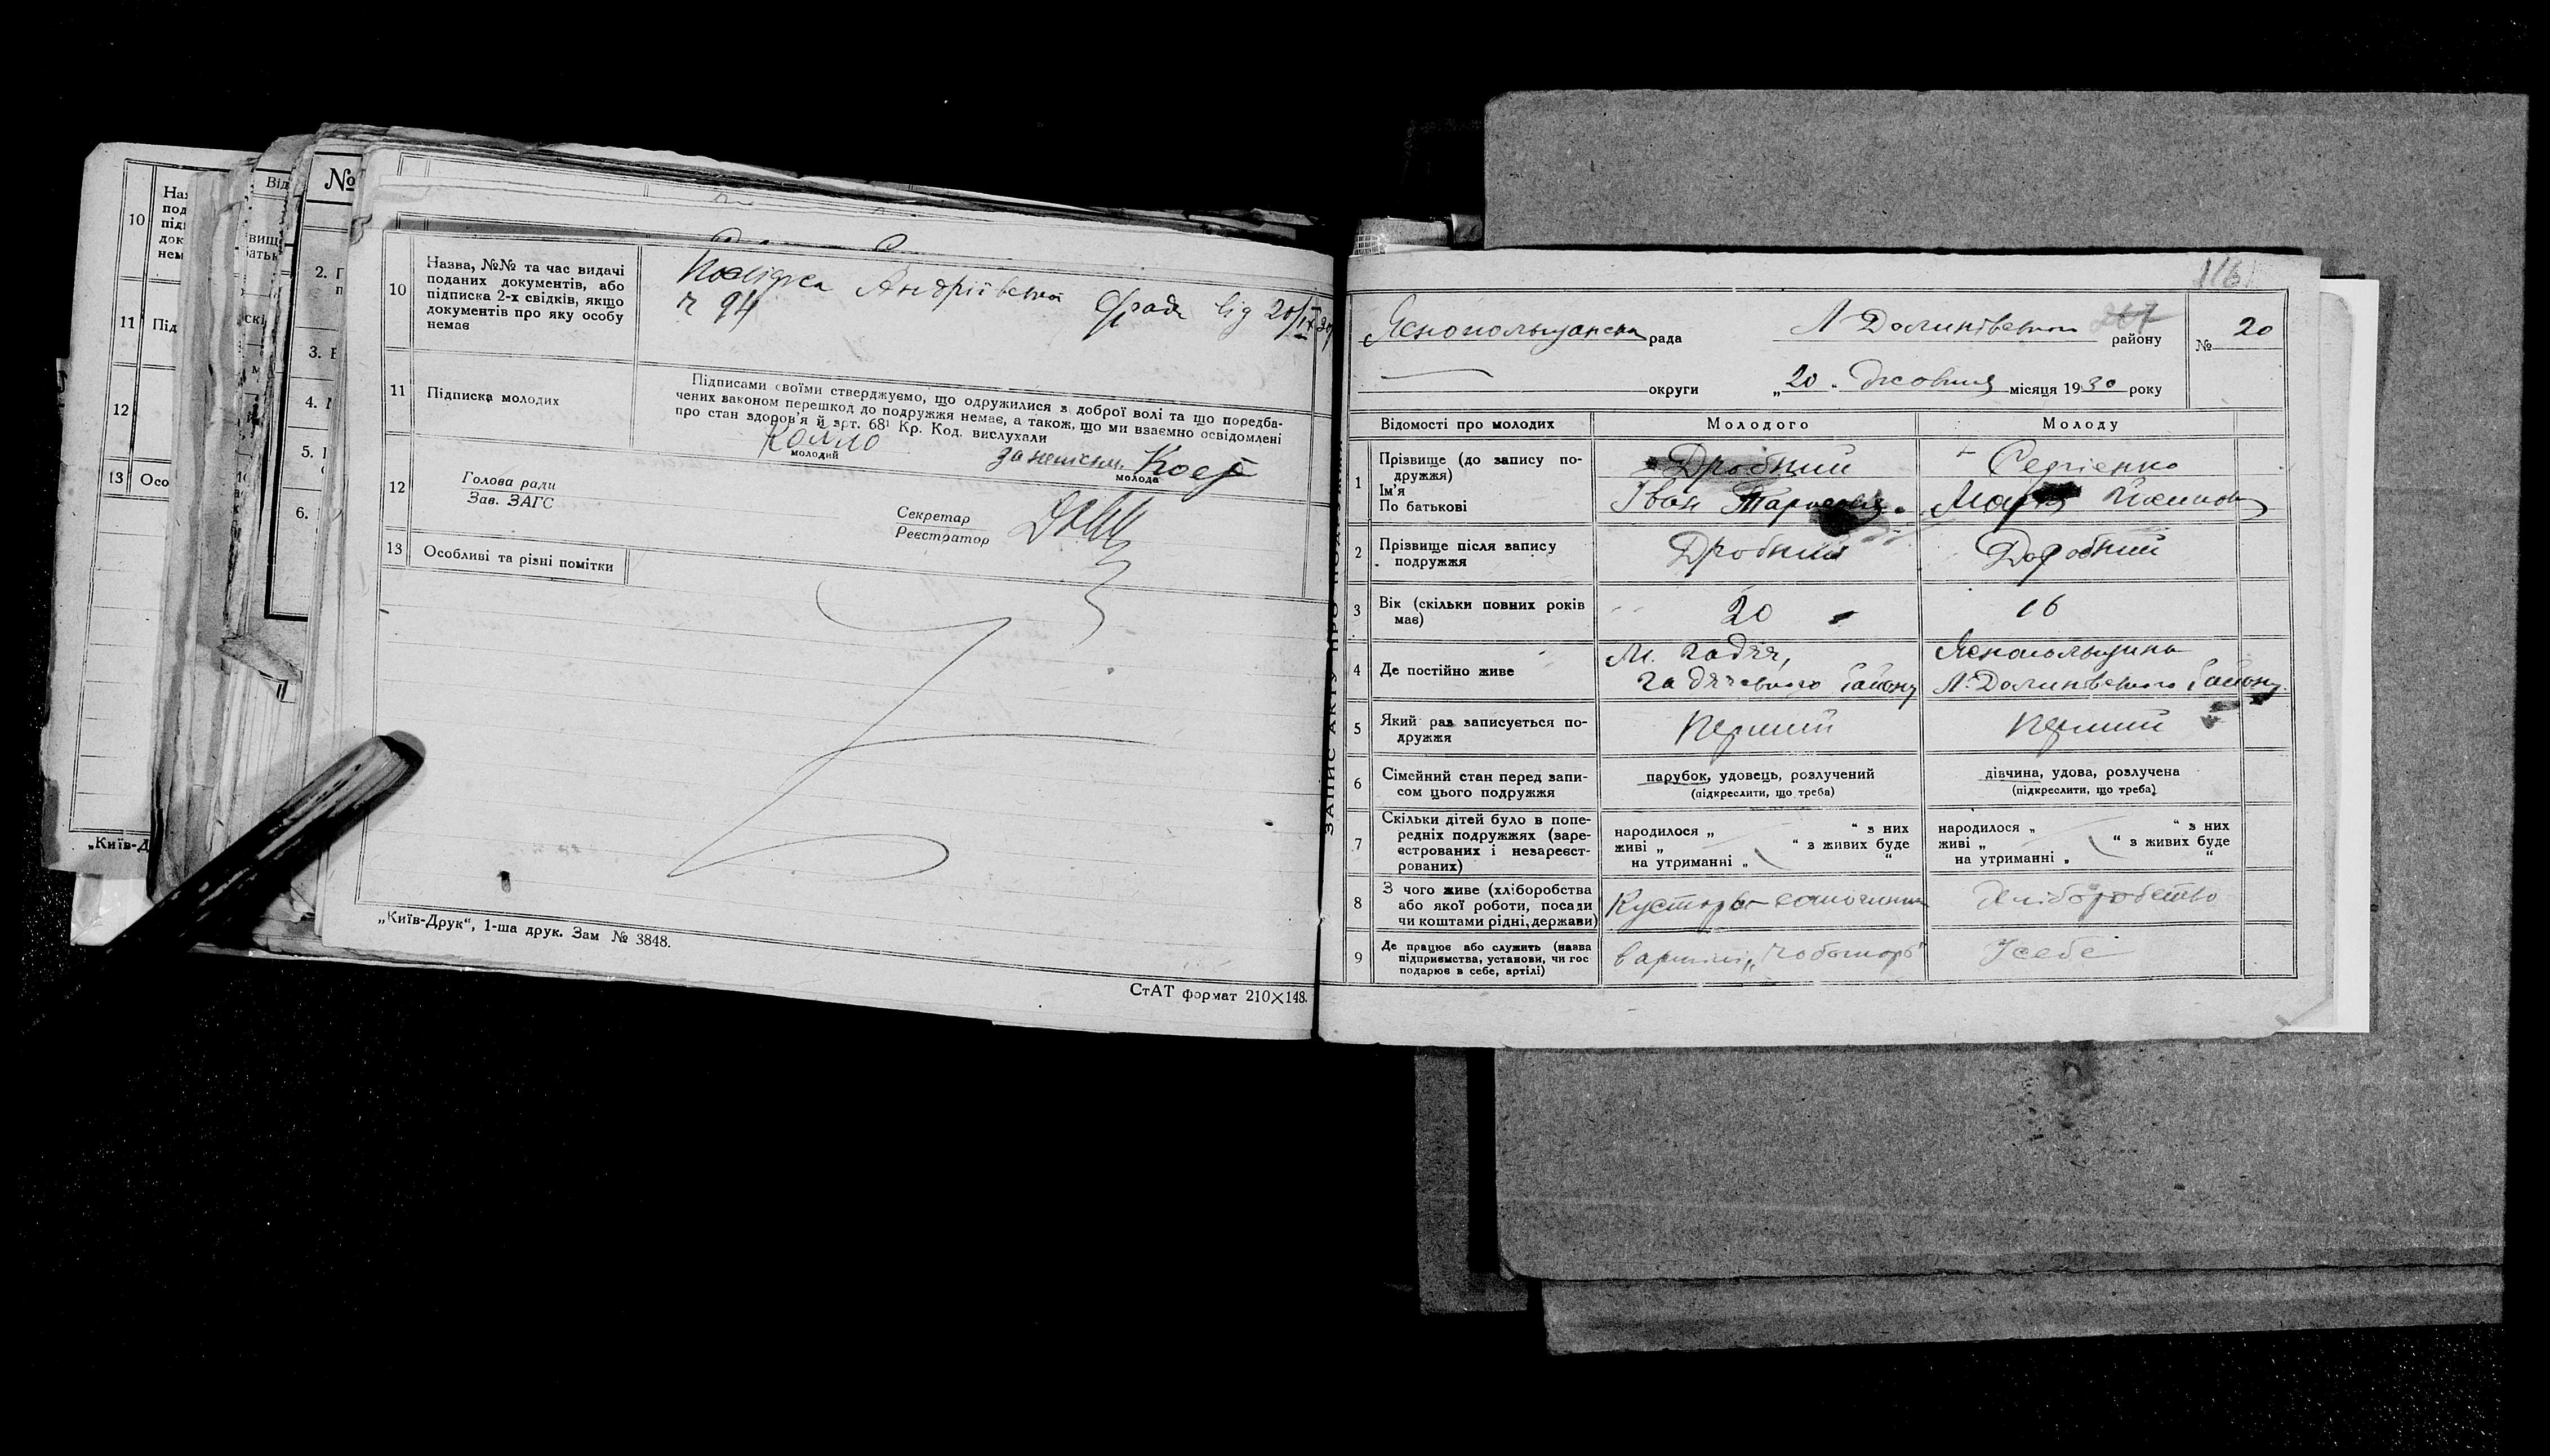 10
На
под
підп
док
нем
11 Під
12
13 Осо
„Київ-Д
Від
№
2. Г
3.
4.
5.
6.
10
Назва, №№ та час видачі
поданих документів, або
підписка 2-х свідків, якщо
документів про яку особу
немає
Посвідка Андріївської с/ради від 20/IX 30
ч 94
11 Підписка молодих
Підписами своїми стверджуємо, що одружилися з доброї волі та що поредба-
чених законом перешкод до подружжя немає, а також, що ми взаємно освідомлені
про стан здоров'я й арт. 68¹ Кр. Код. вислухали
молодий
за неписьм.
молода
12
Голова ради
Зав. ЗАГС
Секретар
Реєстратор
13 Особливі та різні помітки
„Київ-Друк“, 1-ша друк. Зам № 3848.
СтАТ формат 210×148.
ЗАПИС АКТУ ПРО ПОДРУЖЖЯ
116
Яснопольщанська рада
Л Долинівського району
№ 20
округи
„20„ Жовтня місяця 1930 року
Відомості про молодих
Молодого
Молоду
1
Прізвище (до запису по-
дружжя)
Ім'я
По батькові
Дробний
Іван Тарасовіч
Сергієнко
Марія
2
Прізвище після запису
подружжя
Дробний
Дробний
3
Вік (скільки повних років
має)
20
16
4 Де постійно живе
М. Гадяч,
Гадячського Району
Яснопольщина
Л. Долинівського Району
5
Який раз записується по-
дружжя
Перший
Перший
6
Сімейний стан перед запи-
сом цього подружжя
парубок, удовець, розлучений
(підкреслити, що треба)
дівчина, удова, розлучена
(підкреслити, що треба)
7
Скільки дітей було в попе-
редніх подружжях (заре-
єстрованих і незареєст-
рованих)
народилося „ “ з них
живі „ “ з живих буде
на утриманні „ “
народилося „ “ з них
живі „ “ з живих буде
на утриманні „ “
8
З чого живе (хліборобства
або якої роботи, посади
чи коштами рідні, держави)
Кустарь-
Хліборобство
9
Де працює або служить (назва
підприємства, установи, чи гос
подарює в себе, артілі)
в артілі „Чоботарь“
У себе